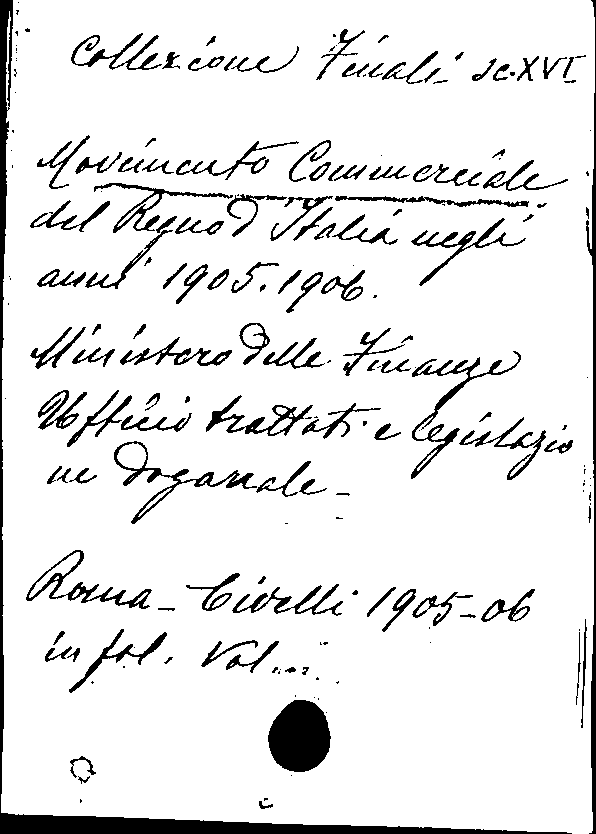 Collezione Finali sc. XVI
Movimento Commerciale
del Regno d'Italia negli
anni 1905. 1906.
Ministero delle Finanze
Ufficio trattati e legislazio
ne doganale -
Roma - Civelli 1905-06
in fol. Vol...